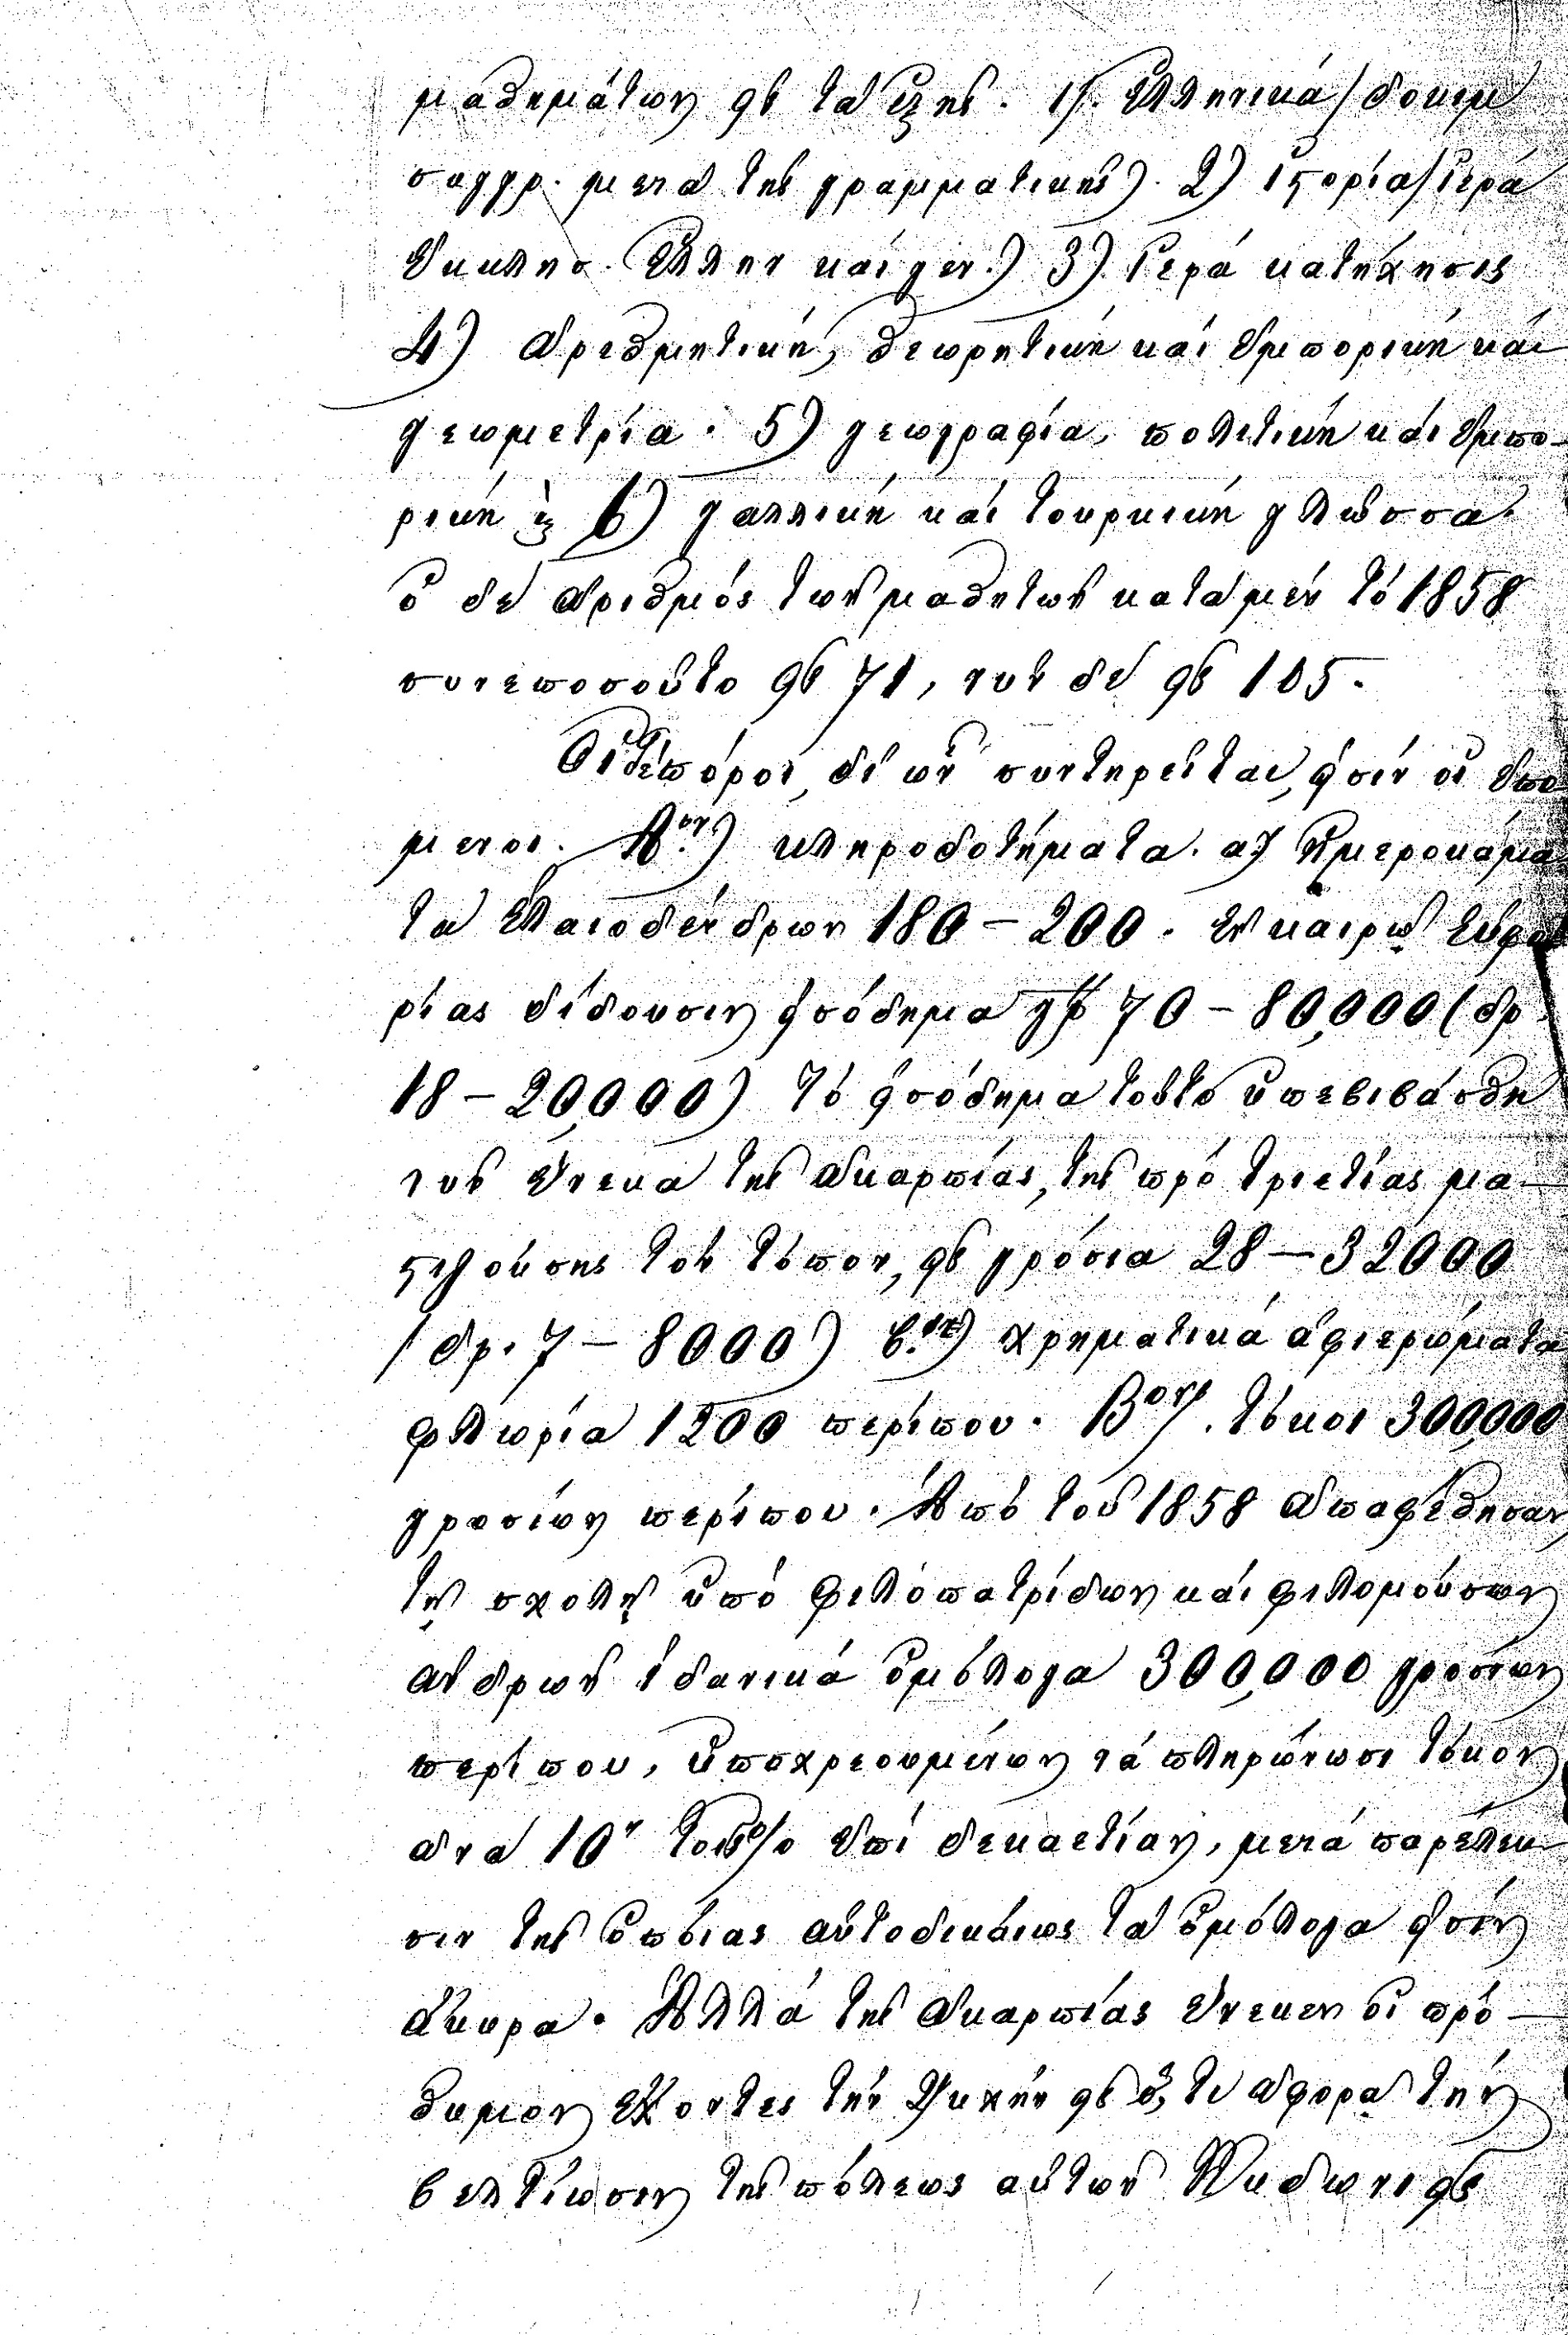 μαθημάτων εἰς τὰ ἑξῆς. 1). Ἑλληνικά (δοκιμ
συγγρ. μετὰ τῆς γραμματικῆς). 2) ἱστορία (ἱερά
ἐκκλησ. Ἑλλην καί γεν.) 3) Ἱερά κατήχησις
4) ἀριθμητική, θεωρητική καί ἐμπορική καί
γεωμετρία. 5) γεωγραφία, πολιτική καί ἐμπο-
ρική καὶ 6) γαλλική καί τουρκική γλῶσσα.
ὁ δὲ ἀριθμός τῶν μαθητῶν κατὰ μέν τό 1858
συνεποσοῦτο εἰς 71, νῦν δὲ εἰς 105.
Οἱ δέ πόροι, δι' ὧν συντηρεῖται, εἰσίν οἱ ἑπό
μενοι. Α.ον) κληροδοτήματα. α) ἡμεροκάμα
τα ἐλαιοδένδρων 180 - 200. ἐν καιρῷ εὐφο
ρίας δίδουσιν εἰσόδημα γρ 70 - 80,000 (δρ
18 - 20,000) Τό εἰσόδημα τοῦτο ὑπεβιβάσθη
νῦν ἕνεκα τῆς ἀκαρπίας, τῆς πρό τριετίας μα-
στιζούσης τόν τόπον, εἰς γρόσια 28 - 32000
(δρ. 7 - 8000) β.ον) χρηματικά ἀφιερώματα
φλωρία 1200 περίπου. Βον). τόκοι 300,000
γροσίων περίπου. Ἀπό τοῦ 1858
τῇ σχολῇ ὑπό φιλοπατρίδων καί φιλομούσων
ἀνδρῶν ἰδανικά ὁμόλογα 300,000 γροσίων
περίπου, ὑποχρεουμένων νά πληρώνωσι τόκον
ἀνὰ 10 τοῖς % ἐπί δεκαετίαν, μετά παρέλευ
σιν τῆς ὁποίας αὐτοδικαίως τὰ ὁμόλογα εἰσίν
ἄκυρα. Ἀλλά τῆς ἀκαρπίας ἕνεκεν οἱ πρό-
θυμον ἔχοντες τήν ψυχήν εἰς ὅ,τι ἀφορᾷ τήν
βελτίωσιν τῆς πόλεως αὐτῶν Κυδωνιεῖς